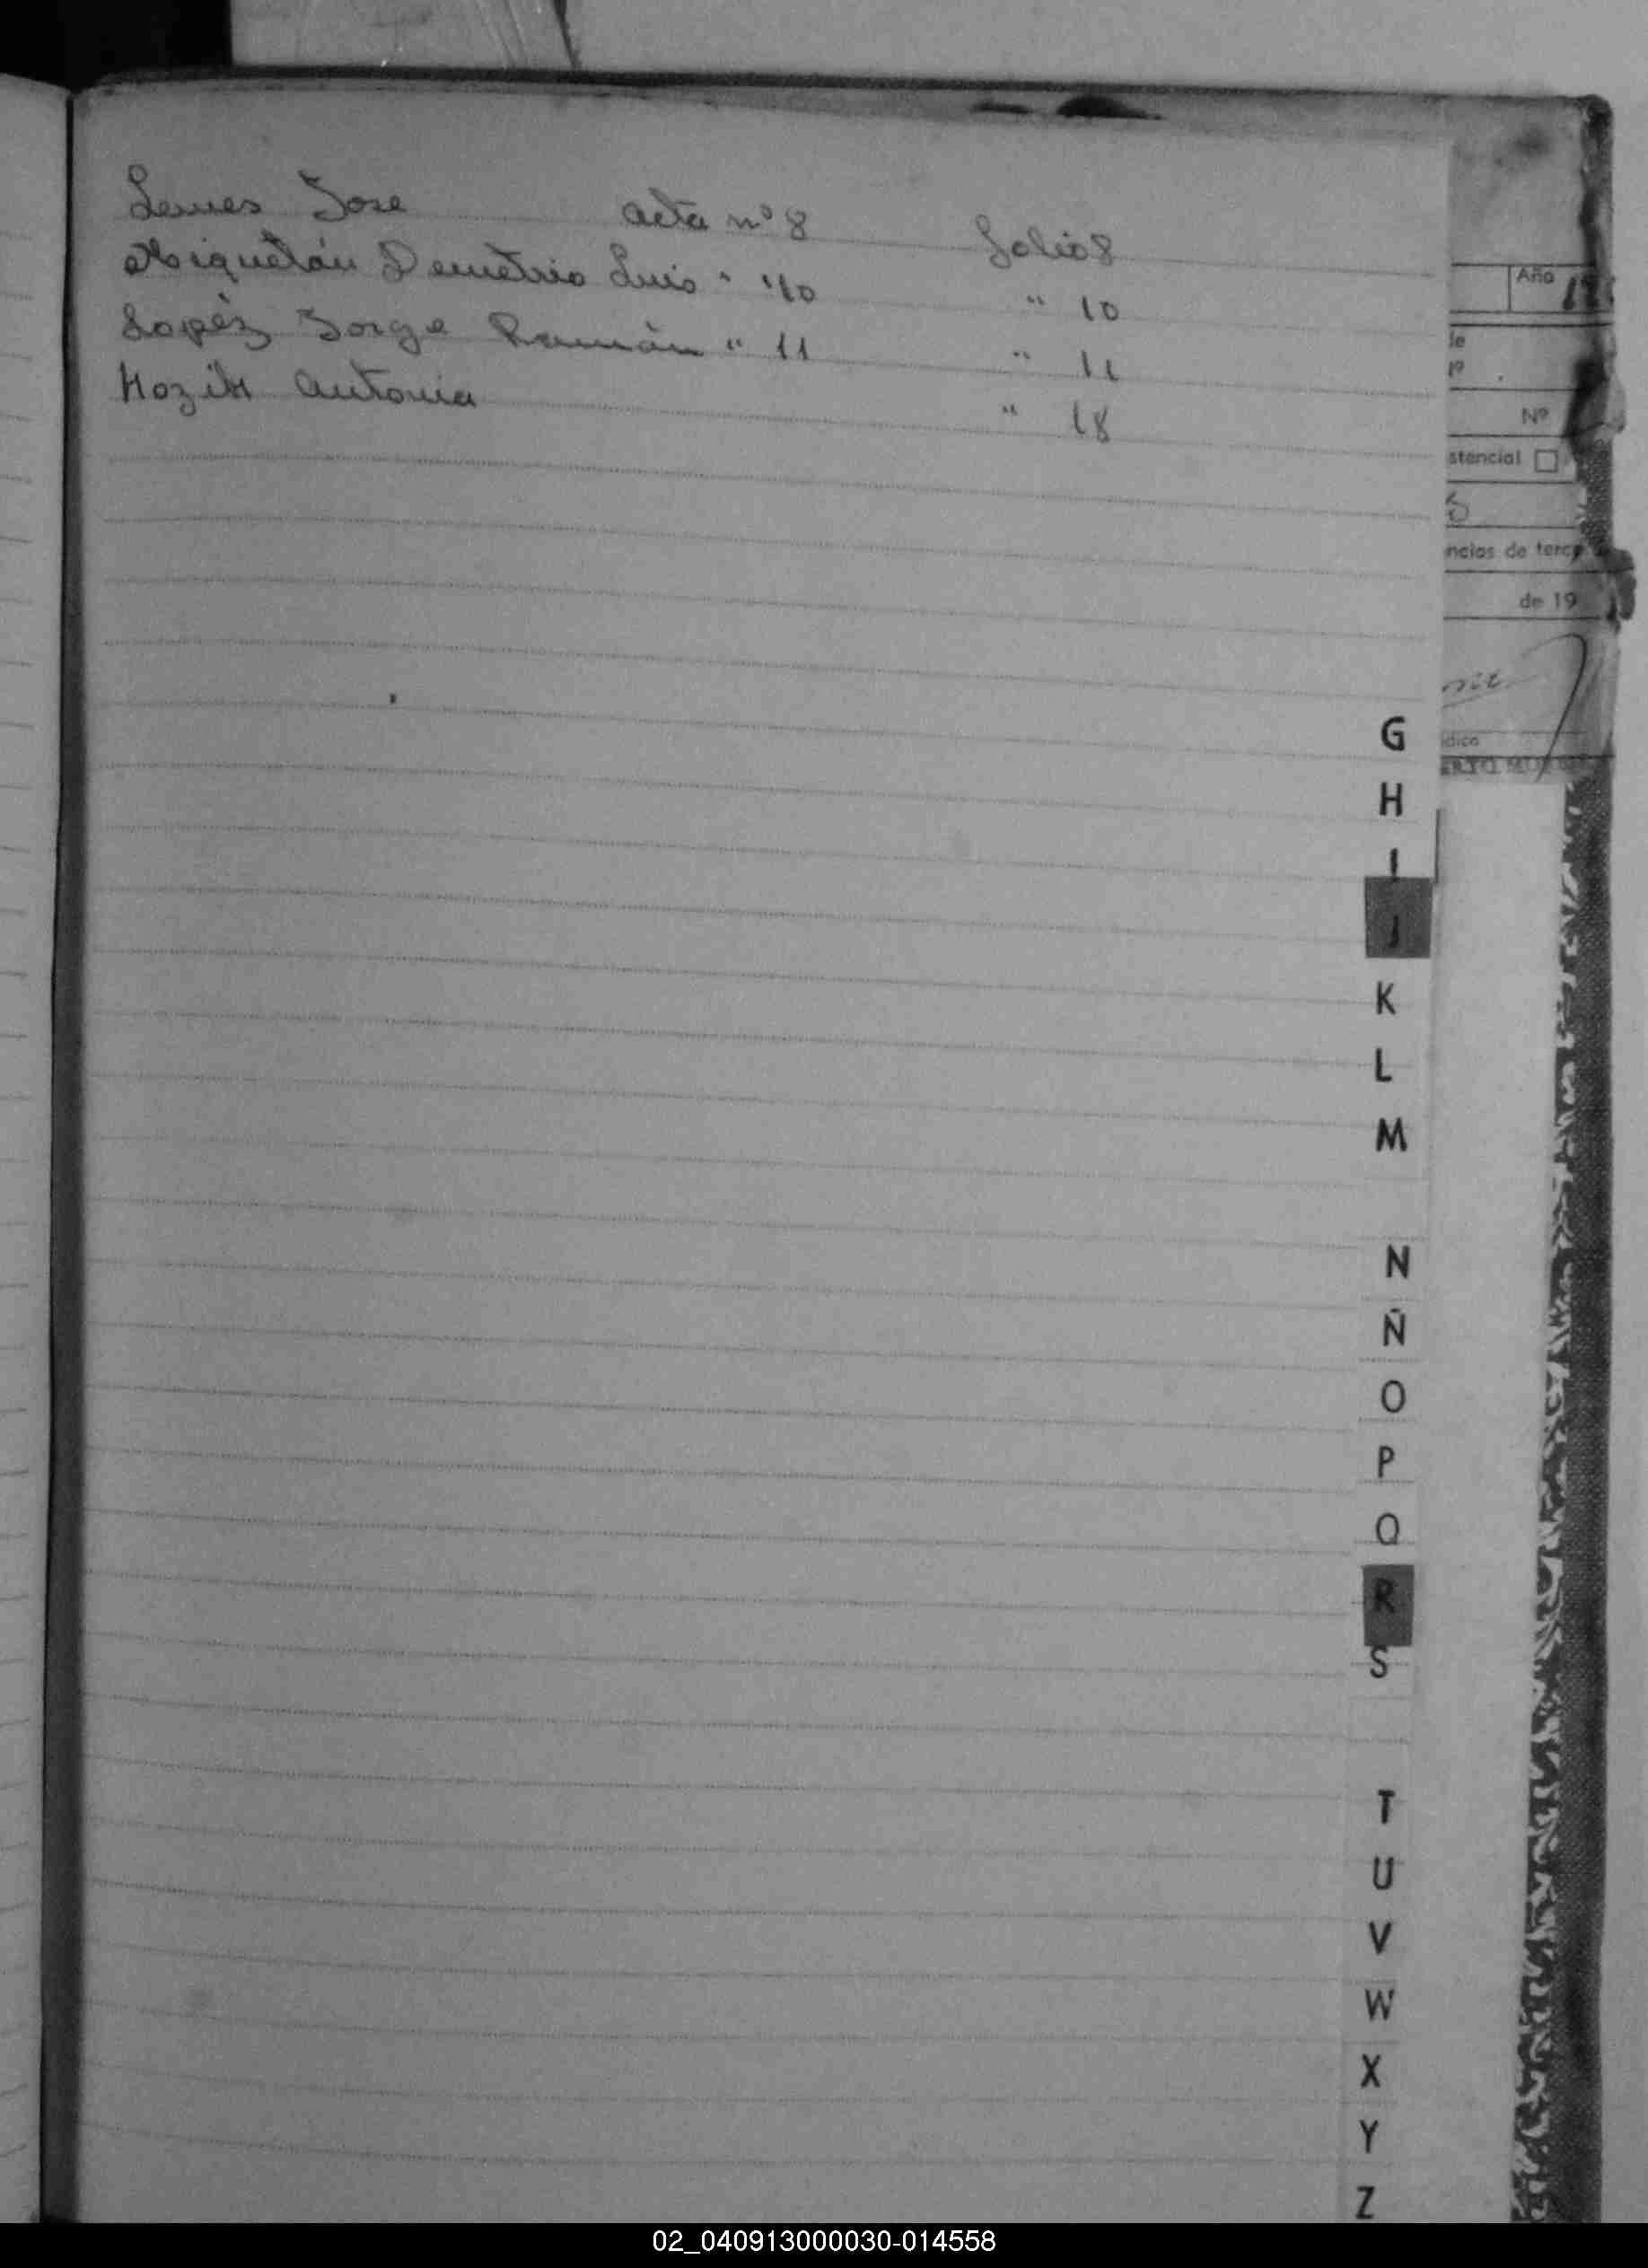 Lemes Jose acta nº 8 folio 8
Miquelán Demetrio Luis " " 10 " 10
Lopéz Jorge Ramón " 11 " 11
Antonia " 18
Año
le
Nº
stencial
ncias de terce
de 19
G
H
I
J
K
L
M
N
Ñ
O
P
Q
R
S
T
U
V
W
X
Y
Z
02_040913000030-014558